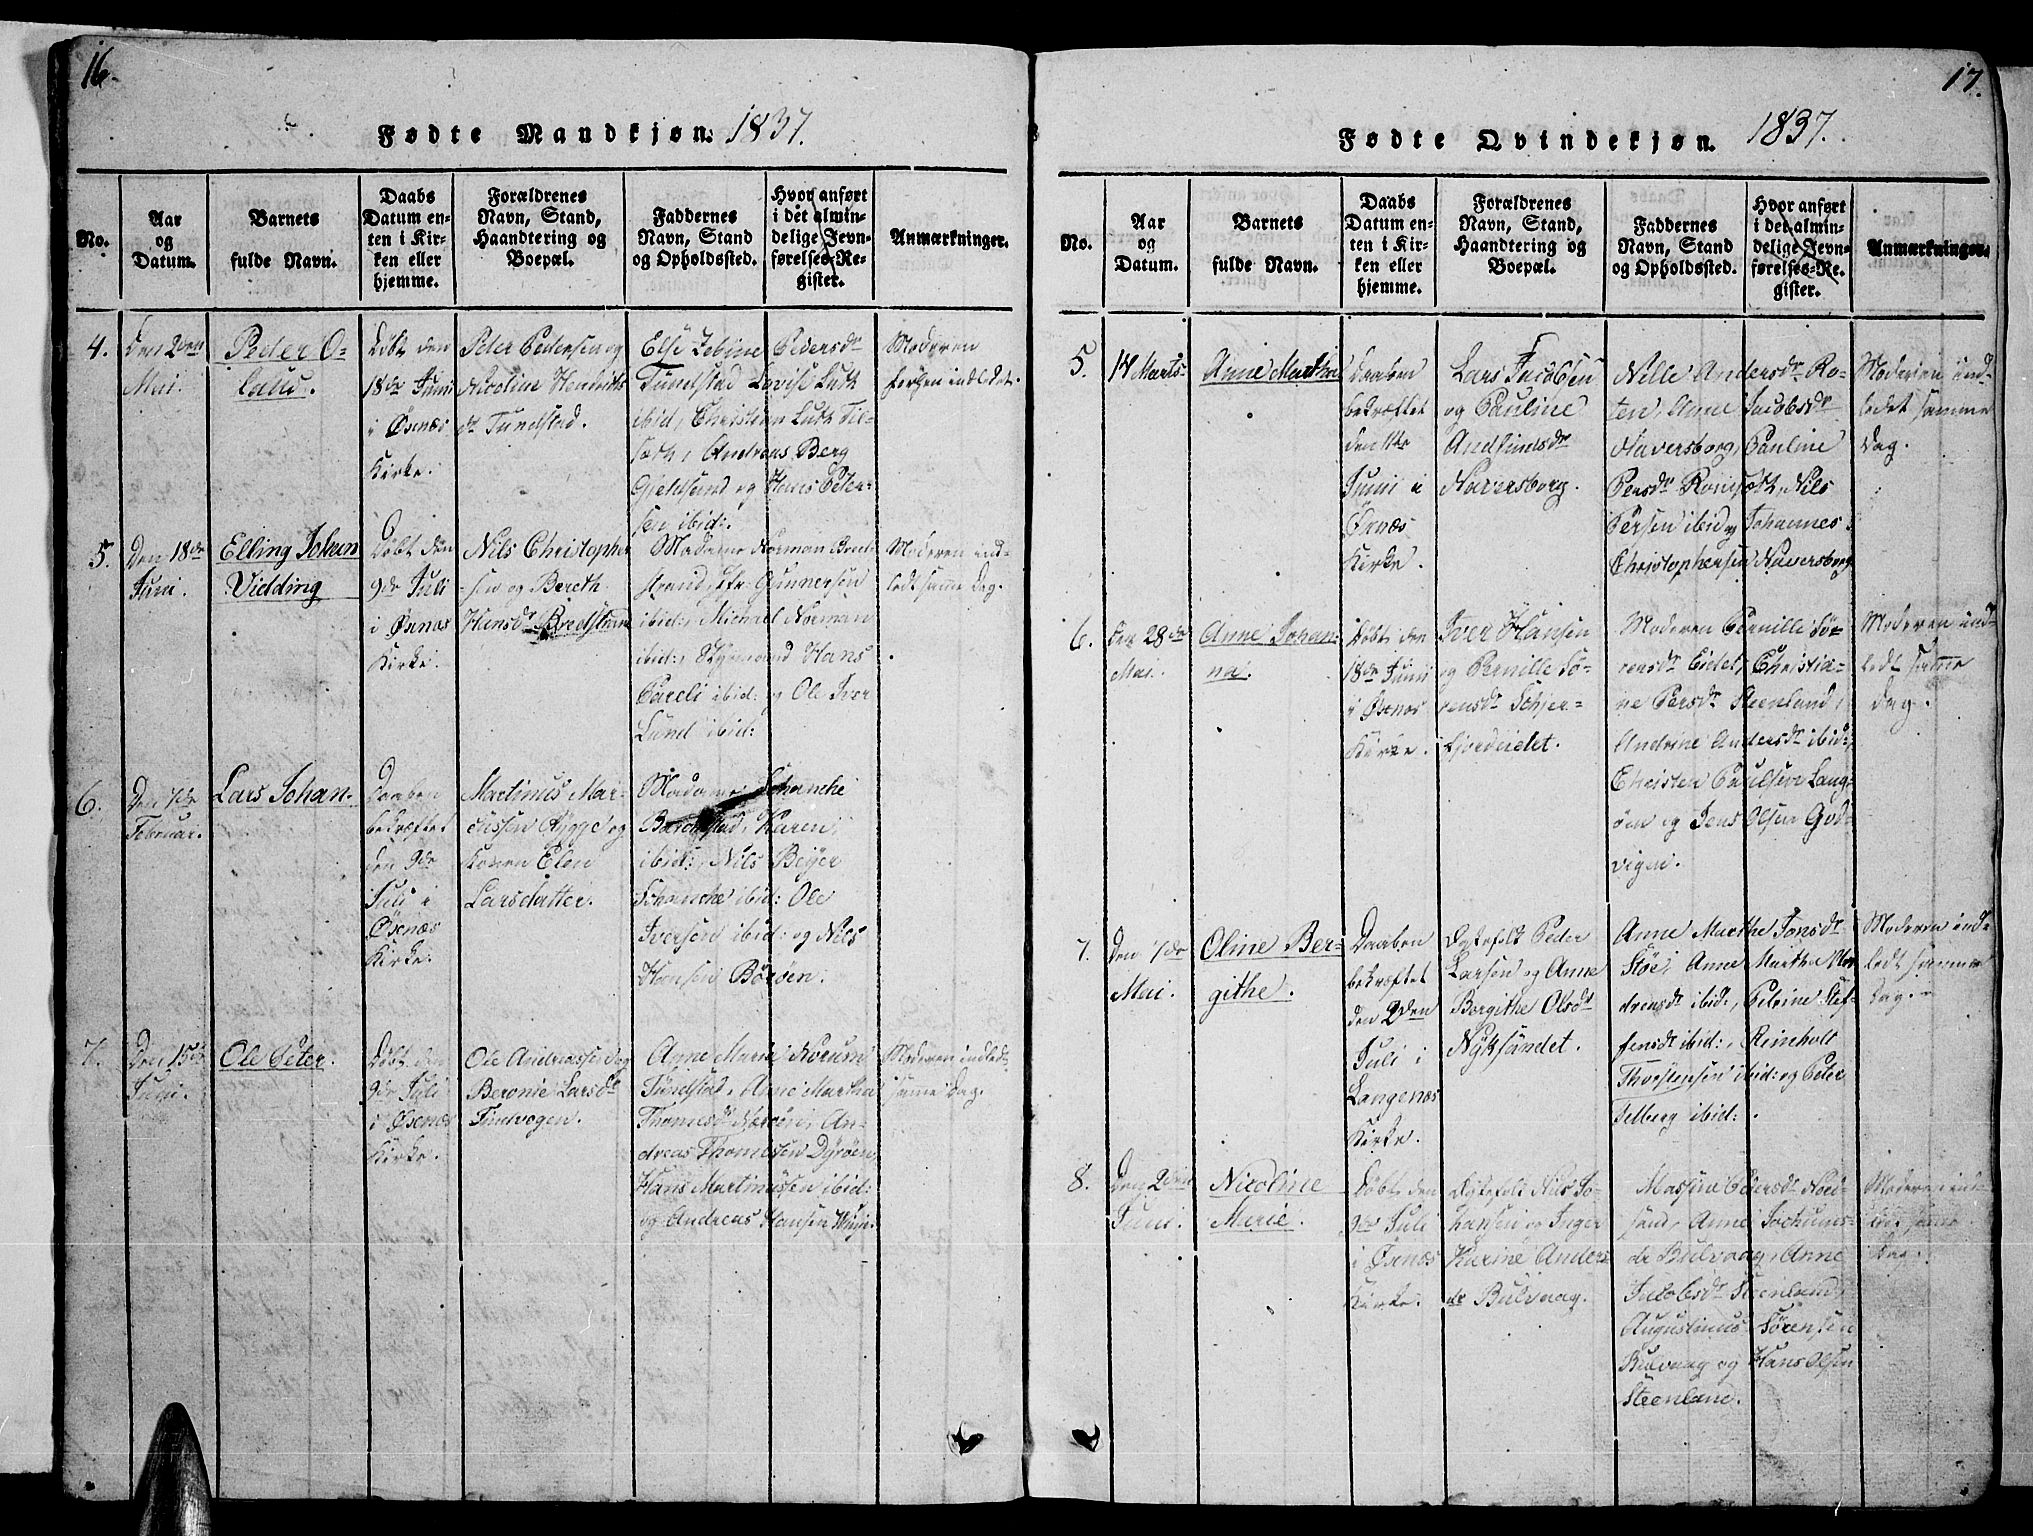 16.
Fødte Mandkjøn. 1837.
No.
Aar
og
Datum.
Barnets
fulde Navn.
Daabs
Datum en-
ten i Kir-
ken eller
hjemme.
Forældrenes
Navn, Stand,
Haandtering og
Boepæl.
Faddernes
Navn, Stand
og Opholdssted.
Hvor anført
i det almin-
delige Jevn-
førelses-Re-
gister.
Anmærkninger.
4.
Den 2den
Mai.
Peder O-
laus.
Døbt den
18de Juni
i Øxnæs
Kirke.
Peter Pedersen og
Nicoline Hendriks
dr Tundstad.
Else Zebine Pedersdr
Tundstad, Lovise Lutk
ibid, Christian Lutk Til-
Andreas Berg
Gjeldsund og Hans Peter-
sen ibid:.
Moderen
indledet.
5.
Den 18de
Juni.
Elling Johan
Vidding
Døbt den
9de Juli
i Øxnæs
Kirke.
Nils Christopher
sen og Bereth
Hansdr Bredstrand
Madame Norman Bred-
strand, Gunnersen
ibid:, Michael Norman
ibid:, Hans
Pareli ibid: og Ole Iver
Lund ibid:
Moderen ind-
ledt samme Dag.
6.
Den 7de
Februar.
Lars Johan.
Daaben
bekræftet
den 9de
Juli i
Øxnæs
Kirke.
Martinus Mar-
tussen Hygge og
Konen Elen
Larsdatter.
Madame Schanche
Barkestad, Karen
ibid:, Nils Beyer
Schanche ibid: Ole
Iversen ibid: og Nils
Hansen Börøen.
7.
Den 15de
Juni.
Ole Peter.
Døbt den
9de Juli
i Øxnæs
Kirke.
Ole Andreassen og
Beronie Larsdr
Finvogen.
Anne Marie Norum
Tundstad, Anne Martha
Thomesdr An-
dreas Thomesen Dyrøen
Hans Martinussen ibid:
og Andreas Hansen
Moderen indledt
samme Dag.
17.
Fødte Qvindekjøn. 1837.
No.
Aar
og
Datum.
Barnets
fulde Navn.
Daabs
Datum en-
ten i Kir-
ken eller
hjemme.
Forældrenes
Navn, Stand,
Haandtering og
Boepæl.
Faddernes
Navn, Stand
og Opholdssted.
Hvor anført
i det almin-
delige Jevn-
førelses-Re-
gister.
Anmærkninger.
5.
14 Marts
Anne Martha
Daaben
bekræftet
den 11te
Juni i
Øxnæs
Kirke.
Lars Jacobsen
og Pauline
Andfindsdr
Haversborg.
Nille Andersdr Ro-
ten, Anne Jacobsdr
Haversborg, Pauline
Persdr Nils
Persen ibid og Johannes
Christophersen Haversborg
Moderen ind-
ledet samme
Dag.
6.
Den 28de
Mai.
Anne Johan-
na.
Døbt den
18de Juni
i Øxnæs
Kirke.
Iver Hansen
og Pernille Sö-
rensdr Schjer-
fjordeidet.
Moderen Pernille Sö-
rensdr Eidet, Christia-
ne Persdr Steenland,
Andrine Andersdr ibid:
Christen Paulsen Lang-
øen og Jens Olsen God-
vigen.
Moderen ind-
ledt samme
Dag.
7.
Den 7de
Mai.
Oline Ber-
githe.
Daaben
bekræftet
den 2den
Juli i
Langenæs
Kirke.
Egtefolk Peder
Larsen og Anne
Bergithe Olsdr
Nyksundet.
Anne Marthe Jonsdr
Støe, Anne Martha An-
drensdr ibid:, Petrine Stef-
fensdr ibid:, Reinholt
Thorstensen ibid: og Peter
Felberg ibid:
Moderen ind-
ledt samme
Dag.
8.
Den 2den
Juni.
Nicoline
Marie.
Døbt den
9de Juli
i Øxnæs
Kirke.
Egtefolk Nils Jo-
hansen og Inger
Karine Anders
dr Bulvaag.
Massine Pedersdr Nord-
sand, Anne Jochums-
dr Bulvaag, Anne
Jacobsdr Steenland,
Augustinus Sörensen
Bulvaag og Hans Olsen
Steenland.
Moderen ind-
ledt samme
Dag.